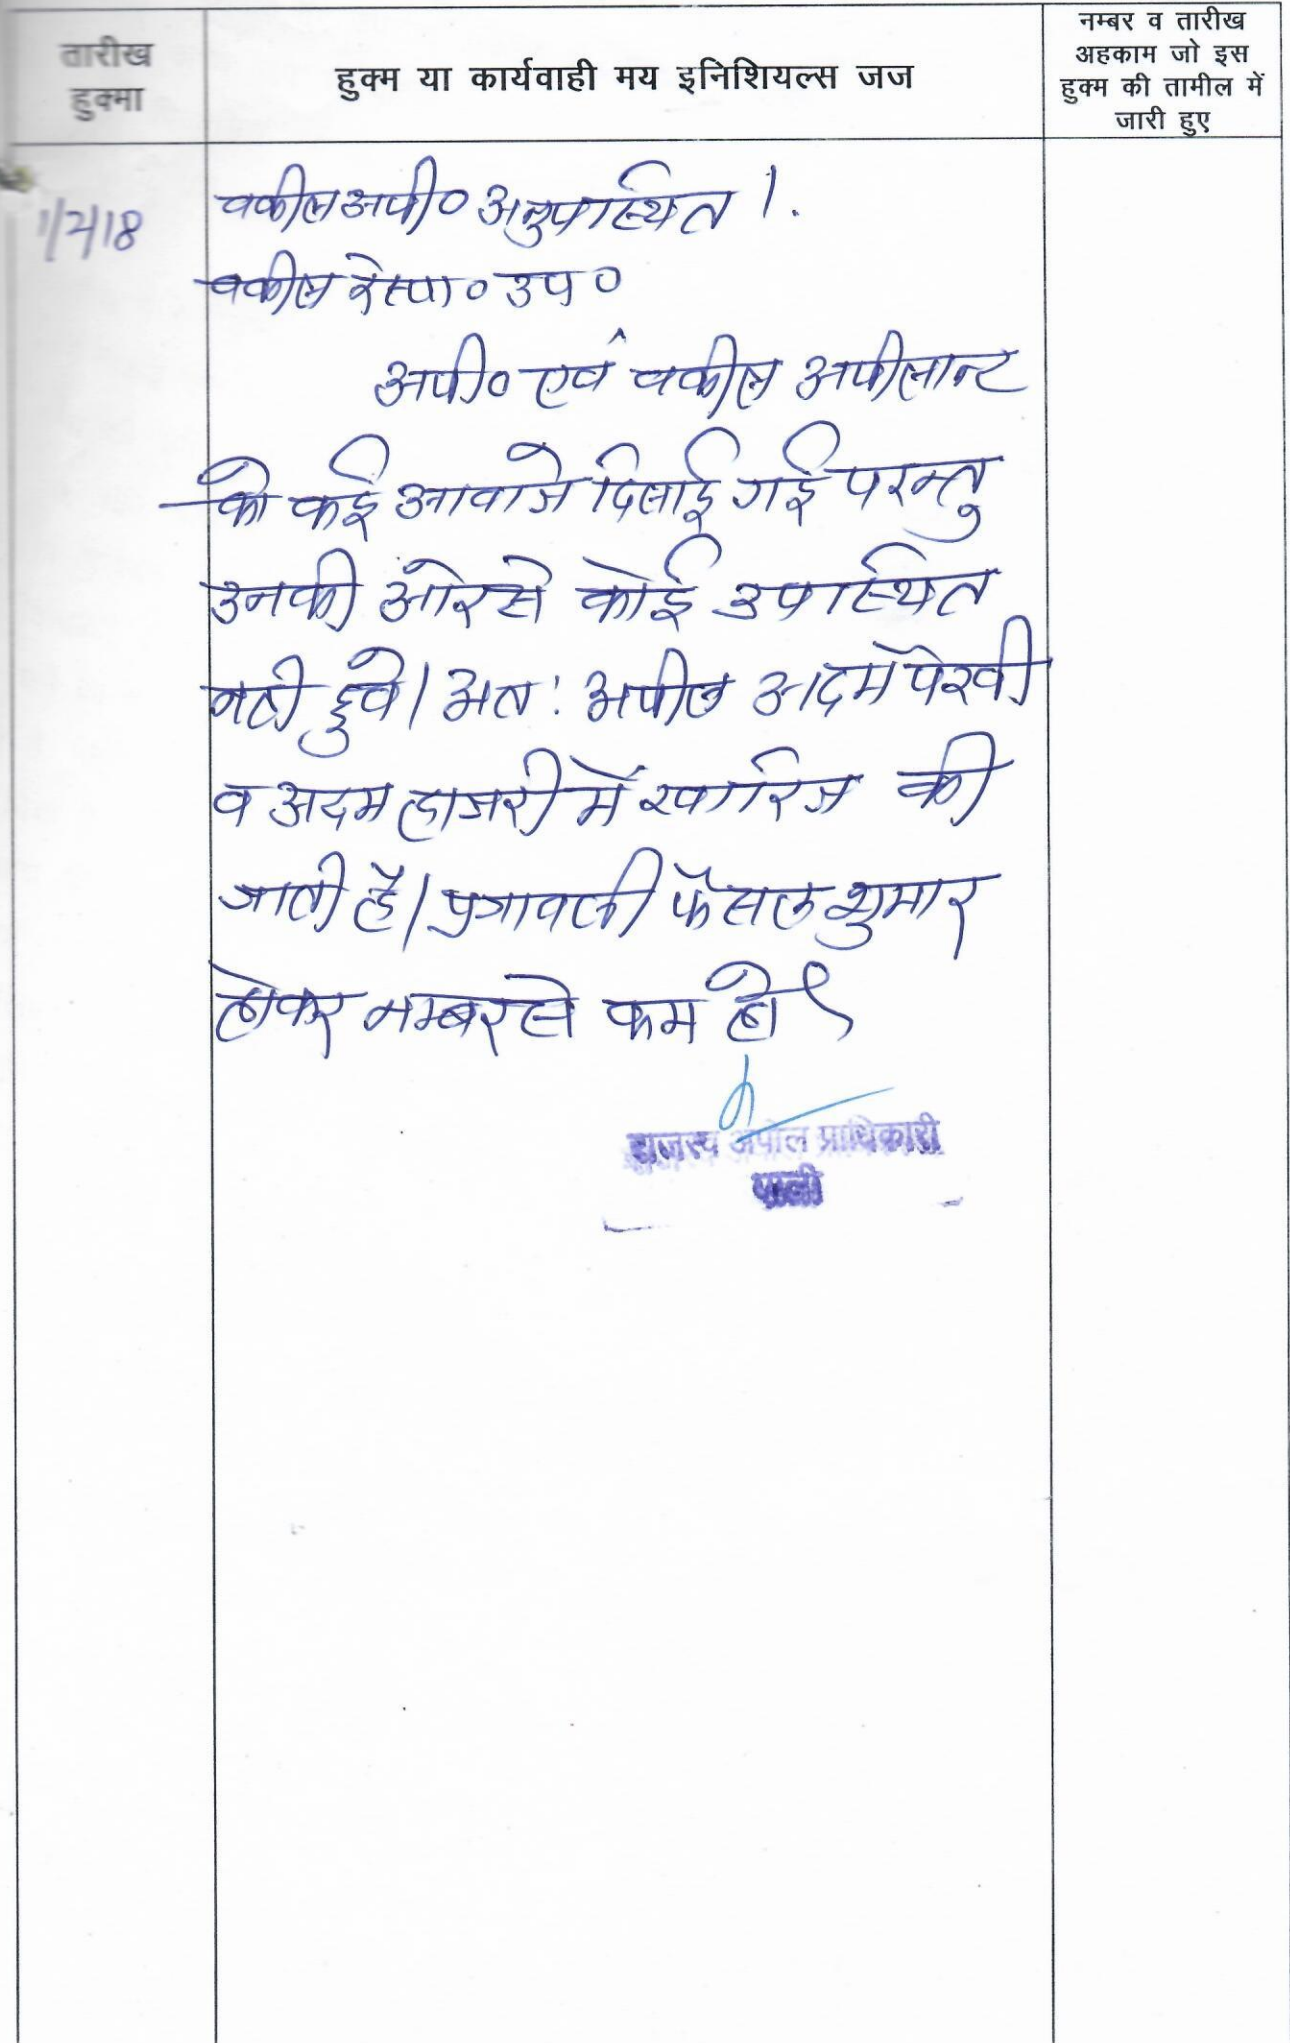 तारीख
हुक्मा
हुक्म या कार्यवाही मय इनिशियल्स जज
नम्बर व तारीख
अहकाम जो इस
हुक्म की तामील में
जारी हुए
1/2/18
वकील अपी० अनुपस्थित ।.
वकील रेस्पा० उप०
अपी० एवं वकील अपीलान्ट
को कई आवाजे दिलाई गई परन्तु
उनकी ओर से कोई उपस्थित
नही हुवे। अत: अपील आदम पेरवी
व अदम हाजरी में खारिज की
जाती है। पत्रावली फैसल शुमार
होकर नम्बर से कम हो
राजस्व अपील प्राधिकारी
पाली